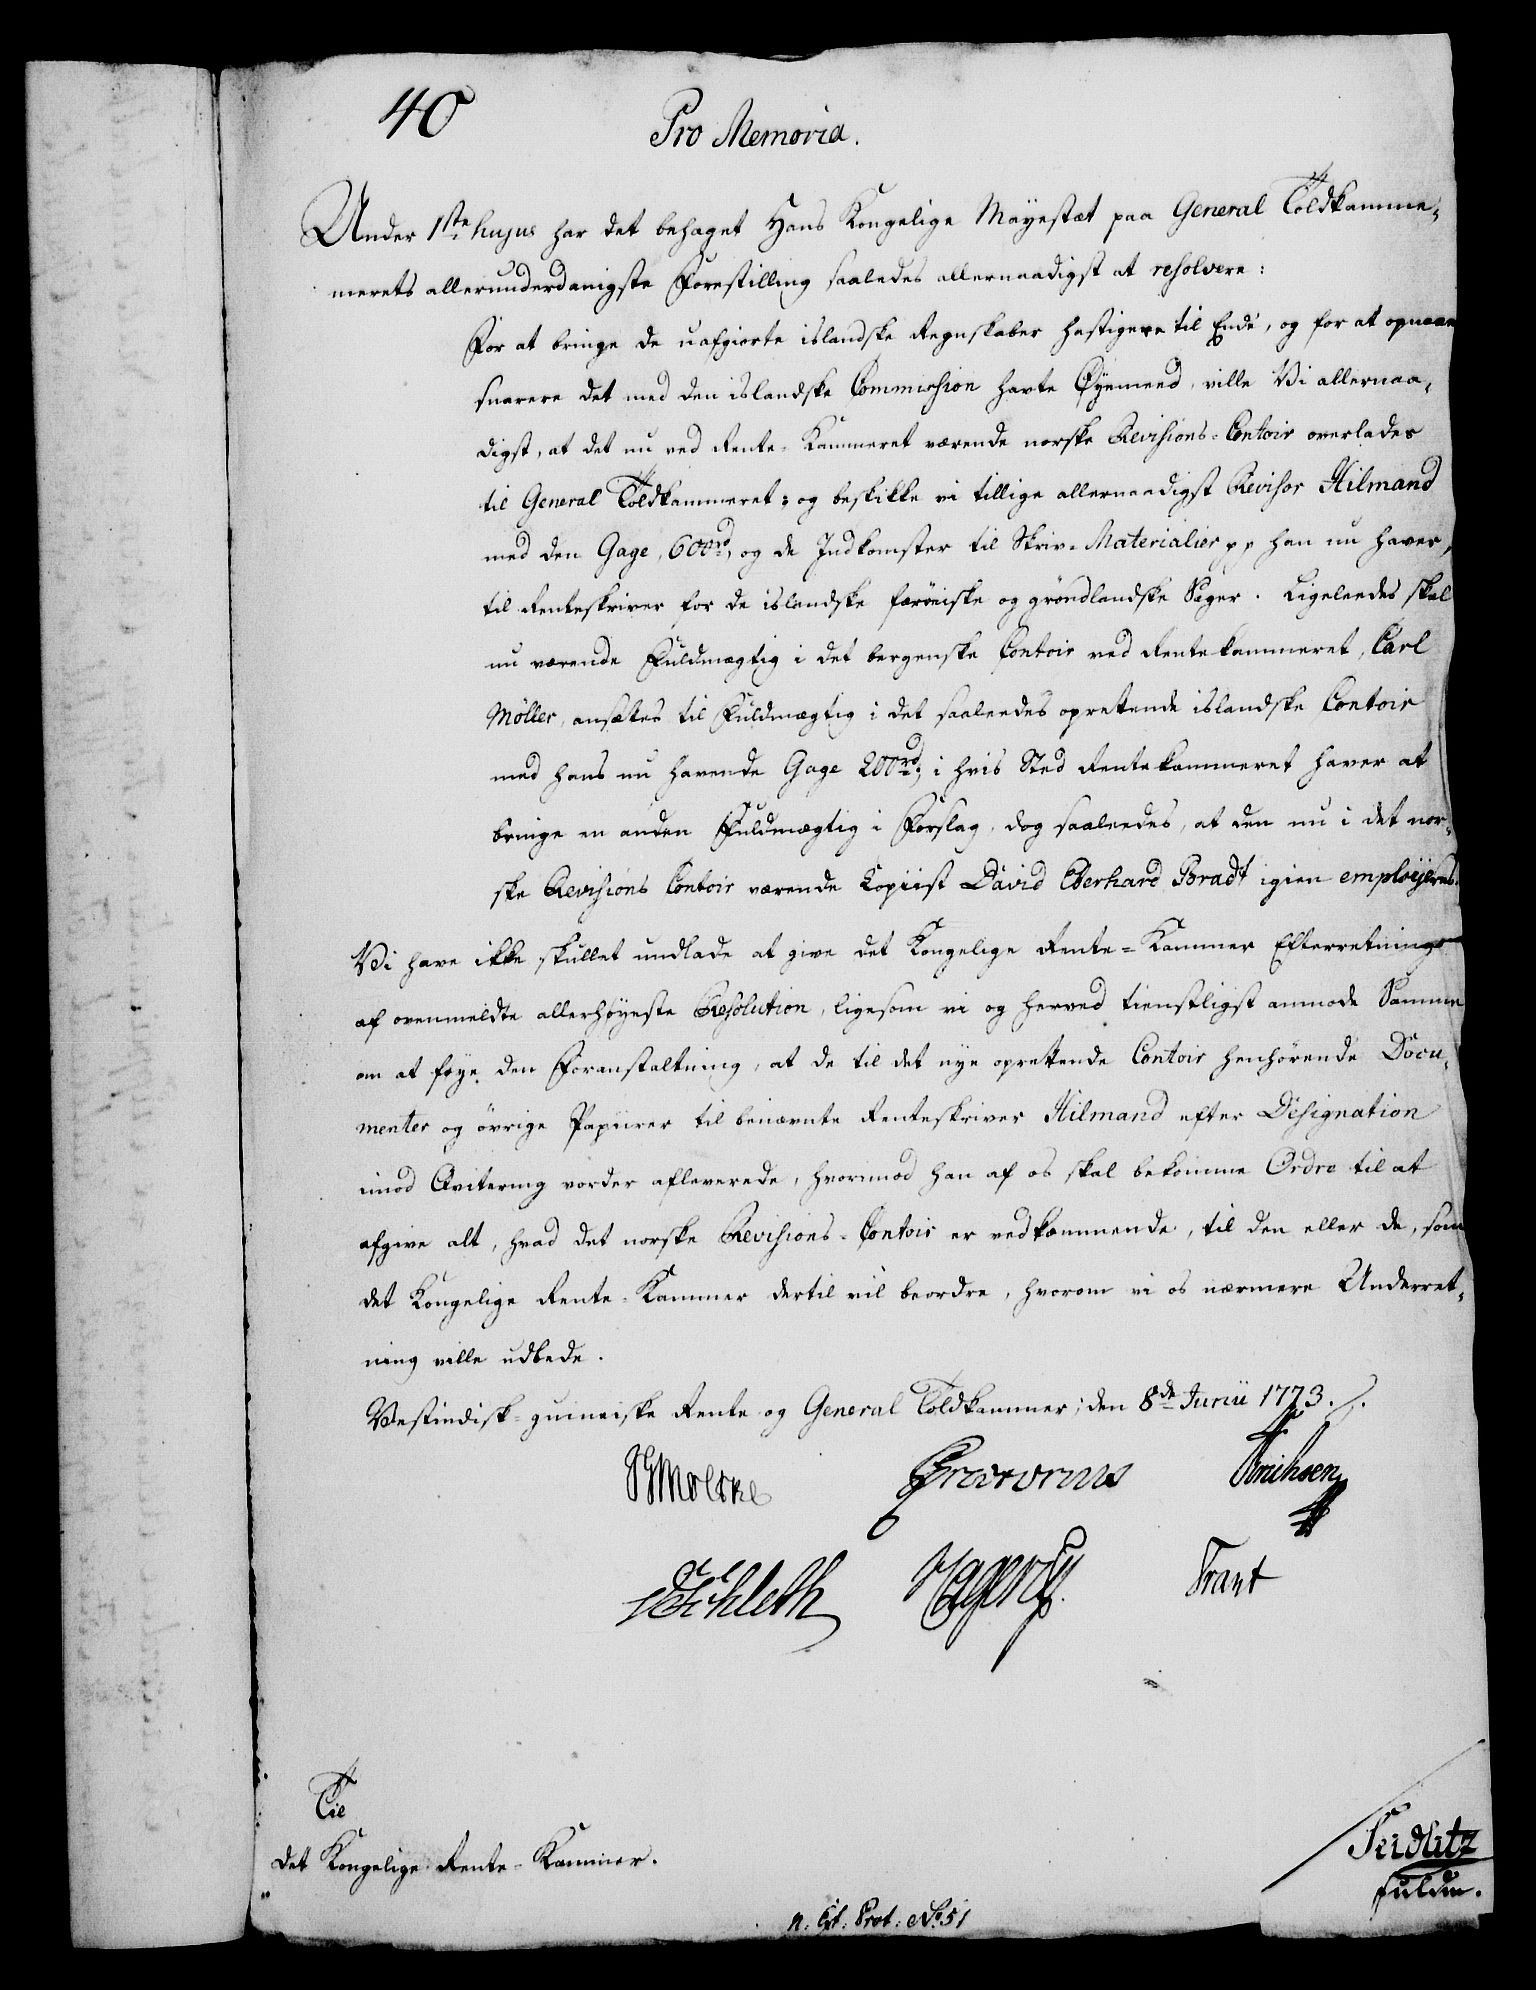 40
Pro Memoria.
Under 1ste hujus har det behaget Hans Kongelige Mayestæt paa General Toldkamme-
merets allerunderdanigste Forestilling saaledes allernaadigst at resolvere:
For at bringe de uafgiorte islandske Regnskaber hastigere til Ende, og for at opnaae
snarere det med den islandske Commission havte Øyemeed, ville Vi allernaa-
digst, at det nu ved Rente-Kammeret værende norske Revisions-Contoir overlades
til General Toldkammeret; og beskikke vi tillige allernaadigst Revisor Hilmand
med den Gage, 600rd, og de Indkomster til Skriv-Materialier pp han nu haver,
til Renteskriver for de islandske færöeiske og grönlandske Sager. Ligeleedes skal
nu værende Fuldmægtig i det bergenske Contoir ved Rentekammeret, Carl
Møller, ansættes til Fuldmægtig i det saaleedes oprettende islandske Contoir
med hans nu havende Gage 200rd; i hvis Sted Rentekammeret haver at
bringe en anden Fuldmægtig i Forslag, dog saaleedes, at den nu i det nor-
ske Revisions Contoir værende Copiist David Eberhard Bradt igien employeres.
Vi have ikke skullet undlade at give det Kongelige Rente-Kammer Efterretning
af ovenmeldte allerhöyeste Resolution, ligesom vi og herved tienstligst anmode Samme
om at föye den Foranstaltning, at de til det nye oprettende Contoir henhörende Docu-
menter og övrige Papiirer til benævnte Renteskriver Hilmand efter Designation
imod Qvitering vorder afleverede, hvorimod han af os skal bekomme Ordre til at
afgive alt, hvad det norske Revisions-Contoir er vedkommende, til den eller de, som
det Kongelige Rente-Kammer dertil vil beordre, hvorom vi os nærmere Underret-
ning ville udbede.
Vestindisk-guineiske Rente og General Toldkammer; den 8de Junii 1773.
Moltke Prætorius Erichsen
Schleth Hagerup Trant
Til
det Kongelige Rente-Kammer.
Seidlitz
fuldm.
n. Ext. Prot. No 51